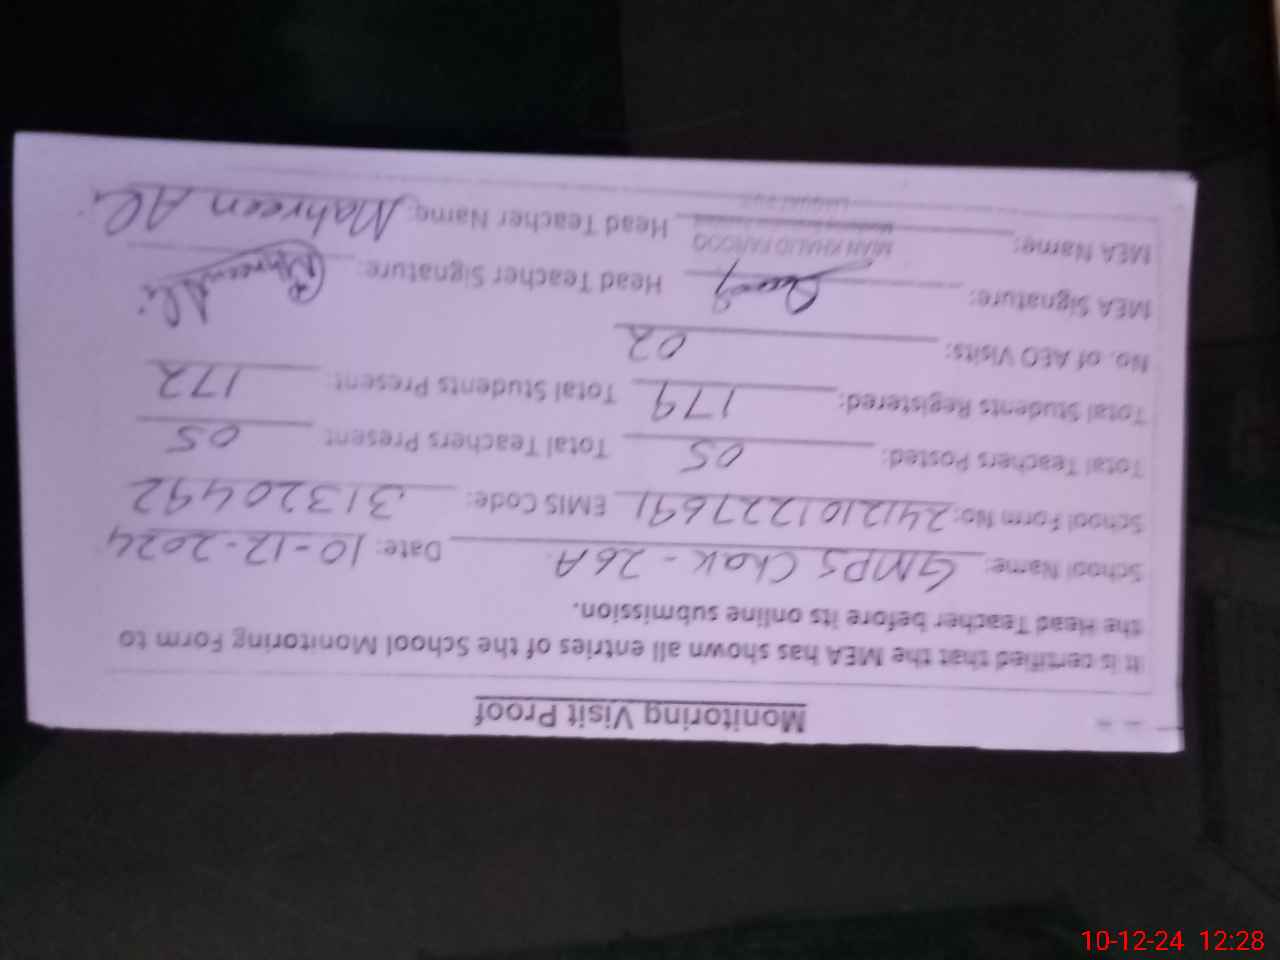 Monitoring Visit Proof
It is certified that the MEA has shown all entries of the School Monitoring Form to
the Head Teacher before its online submission.
School Name: GMPS Chak - 26A Date: 10-12-2024
School Form No: 2412101227691 EMIS Code: 31320492
Total Teachers Posted: 05 Total Teachers Present 05
Total Students Registered: 179 Total Students Present: 172
No. of AEO Visits: 02
MEA Signature: Head Teacher Signature: Mahreen Ali
MIAN KHALID FAROOQ
MEA Name: Head Teacher Name: Mahreen Ali
10-12-24 12:28